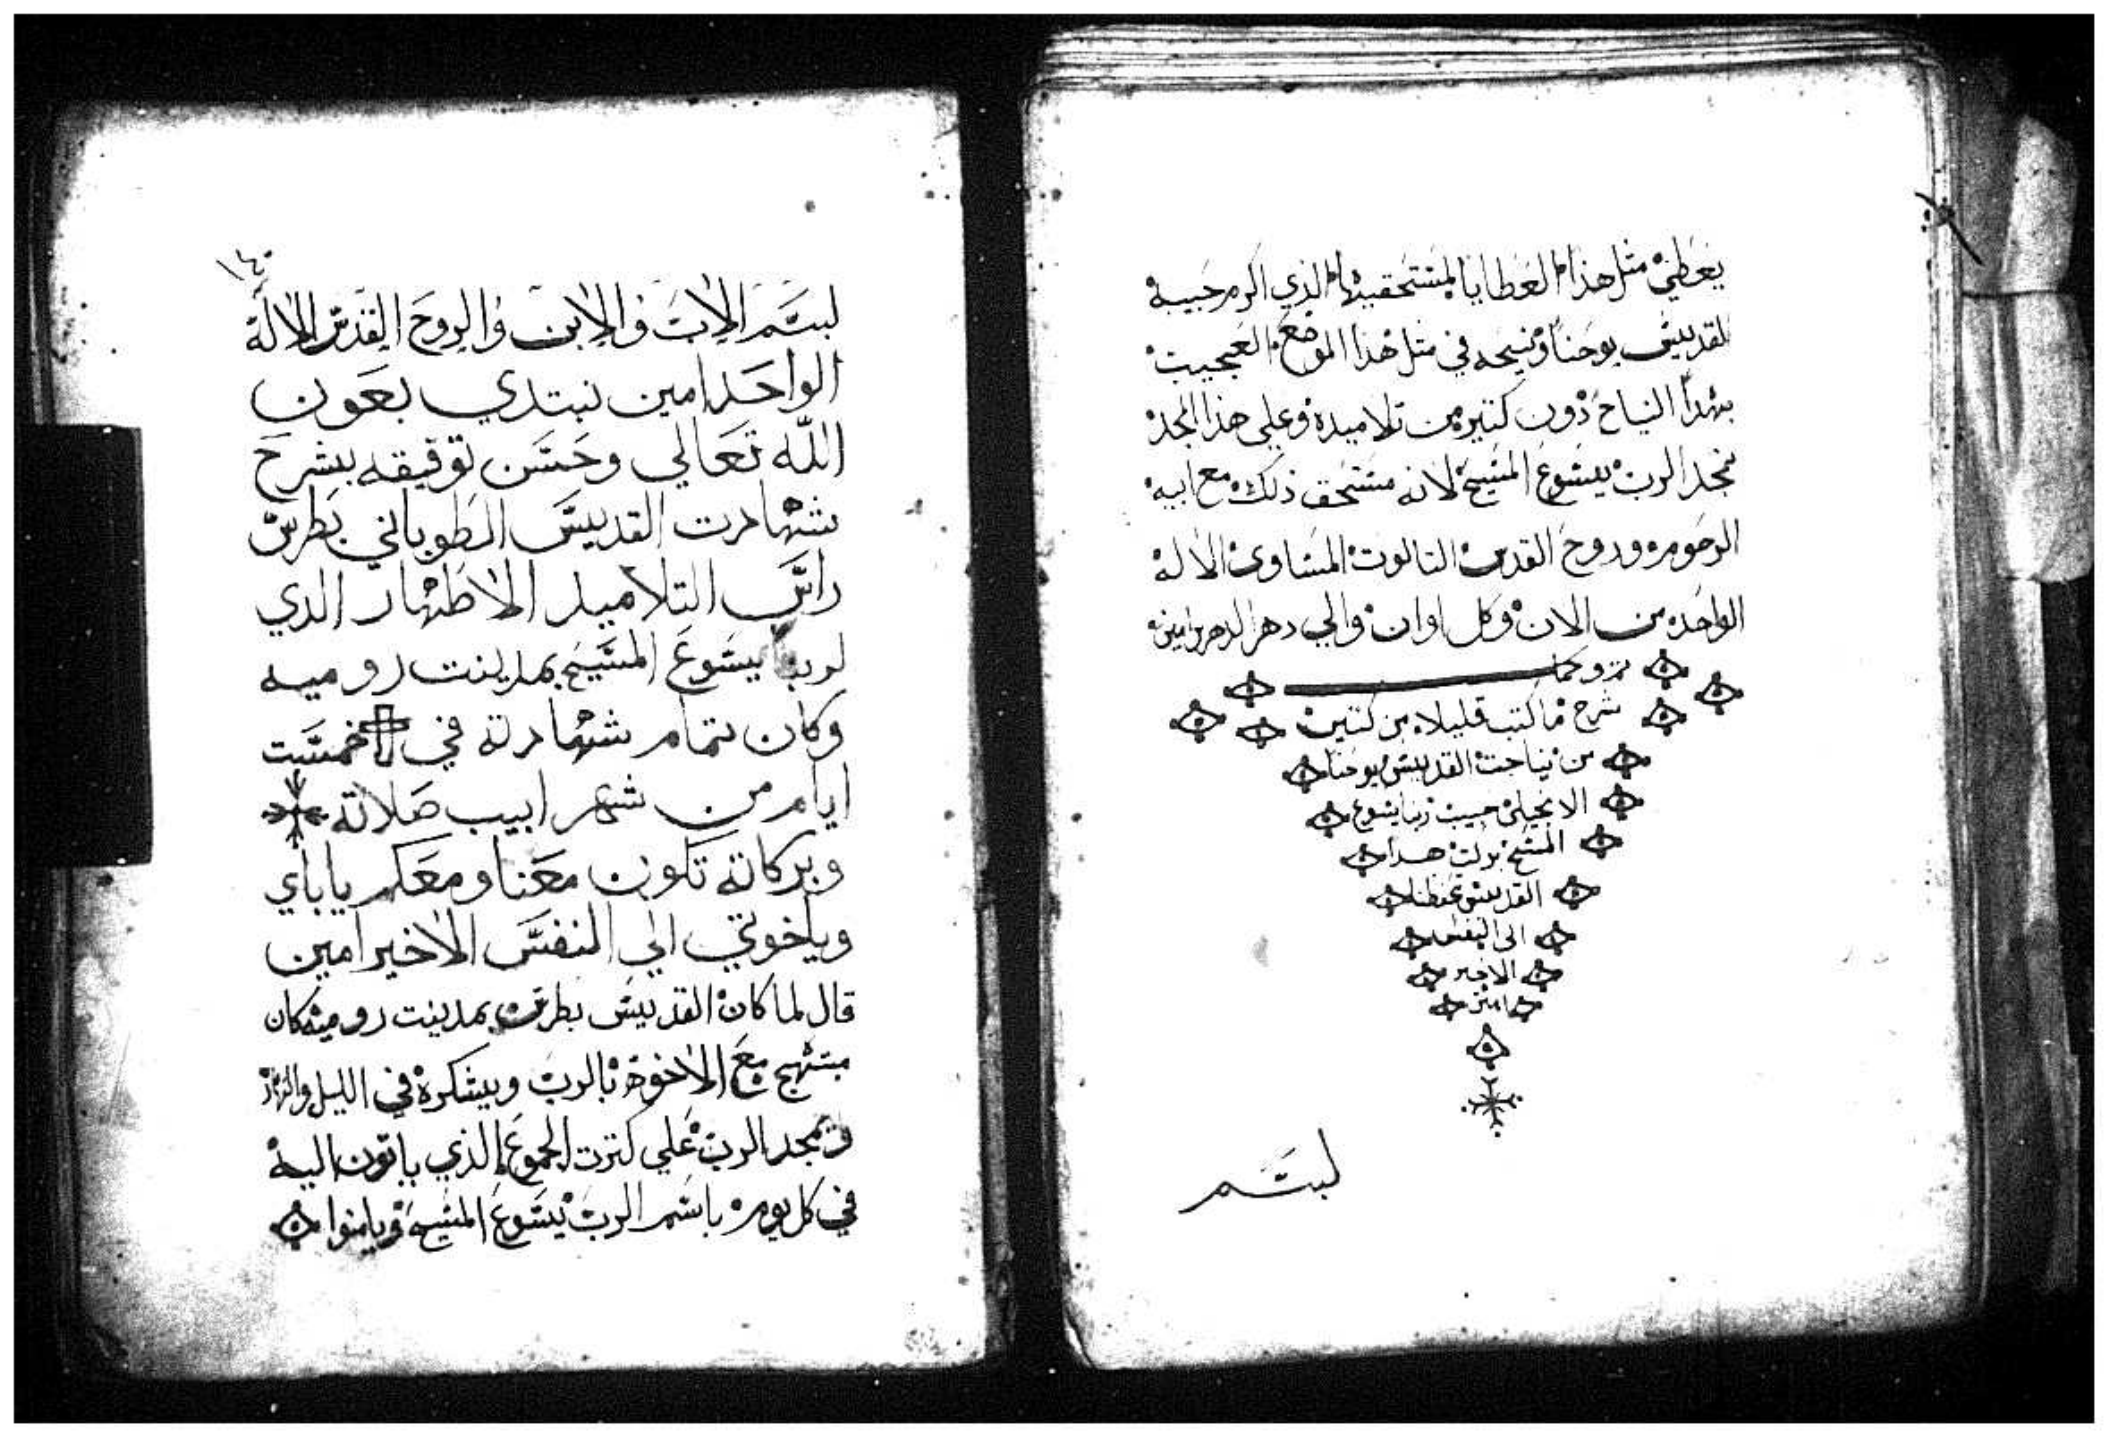 يعطي مثل هذا العطايا لمستحقيها الذي اكرم حبيبه
القديس يوحنا ونيحه في مثل هذا الموضع العجيب
بهدا النياح دون كتير من تلاميده وعلي هذا المجد
نمجد الرب يسوع المسيح لانه مستحق ذلك مع ابيه
الرحوم وروح القدس التالوت المساوي الاله
الواحد من الان وكل اوان والي دهر الدهرين امين
شرح ما كتب قليلا من كتير
من نياحت القديس يوحنا
الانجيلي حبيب ربنا يسوع
المسيح بركت هدا
القديس تحفظنا
الي النفس
الاخير
امين
لبسم
١٤٠
لبسم الاب والابن والروح القدس الاله
الواحد امين نبتدي بعون
الله تعالي وحسن توفيقه بشرح
شهادت القديس الطوباني بطرس
راس التلاميد الاطهار الدي
لربنا يسوع المسيح بمدينت روميه
وكان تمام شهادته في خمست
ايام من شهر ابيب صلاته
وبركاته تكون معنا ومعكم يا باي
وياخوتي الي النفس الاخير امين
قال لما كان القديس بطرس بمدينت روميه كان
مبتهج مع الاخوة بالرب ويشكره في الليل والنهار
ويمجد الرب علي كترت الجموع الذي ياتون اليه
في كل يوم باسم الرب يسوع المسيح ويامنوا